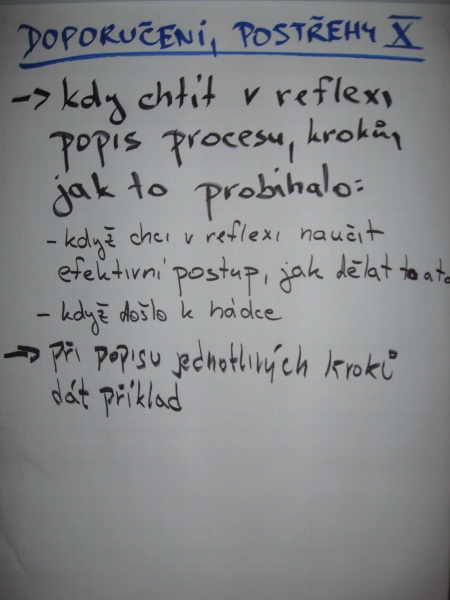 DOPORUČENÍ, POSTŘEHY X
-> kdy chtít v reflexi
popis procesu, kroků,
jak to probíhalo:
- když chci v reflexi naučit
efektivní postup, jak dělat to a to
- když došlo k hádce
-> při popisu jednotlivých kroků
dát příklad